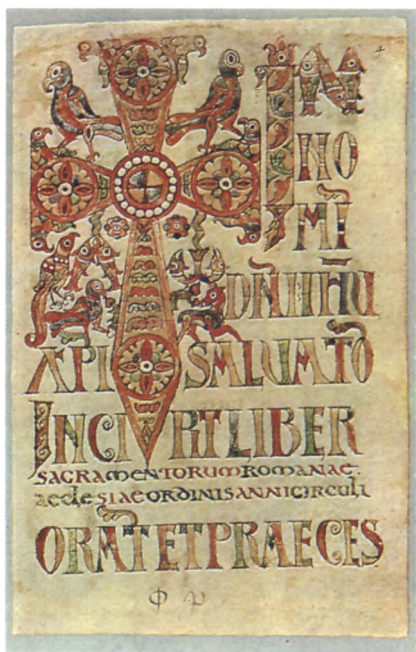 IN
NO
MĪ
DÑI IHŪ
XPI SALVATO
INCIPIT LIBER
SACRAMENTORUM ROMANAE
aeclesiae ORDINIS ANNI CIRCULI
ORAT ET PRAECES